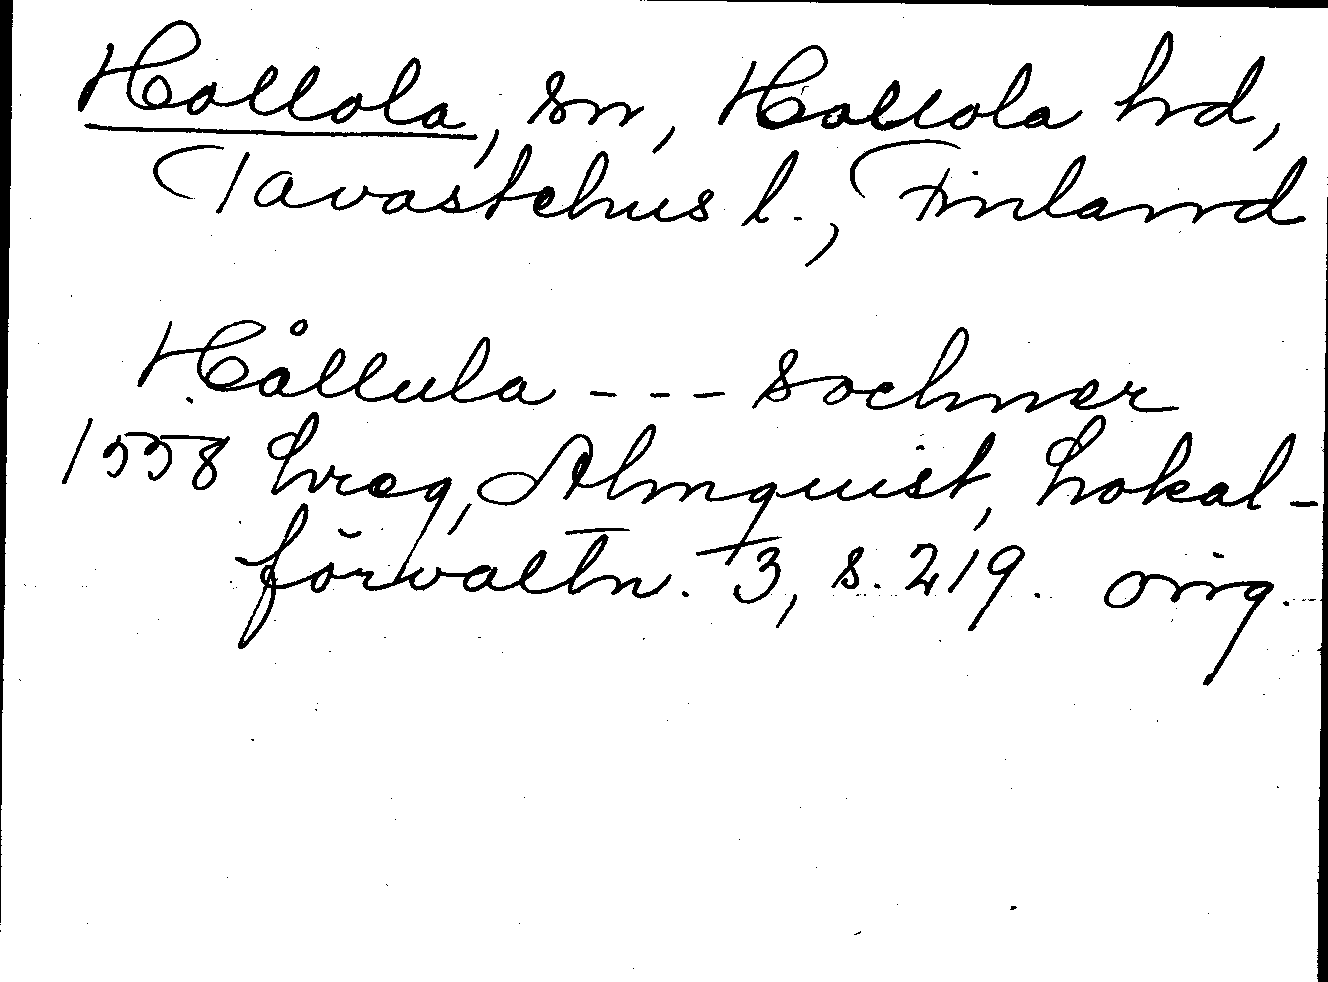 Hollola, sn, Hollola hd,
Tavastehus l., Finland
Hållula --- sochner
1558 hreg, Almquist, Lokal-
förvaltn. 3, s. 219. orig.